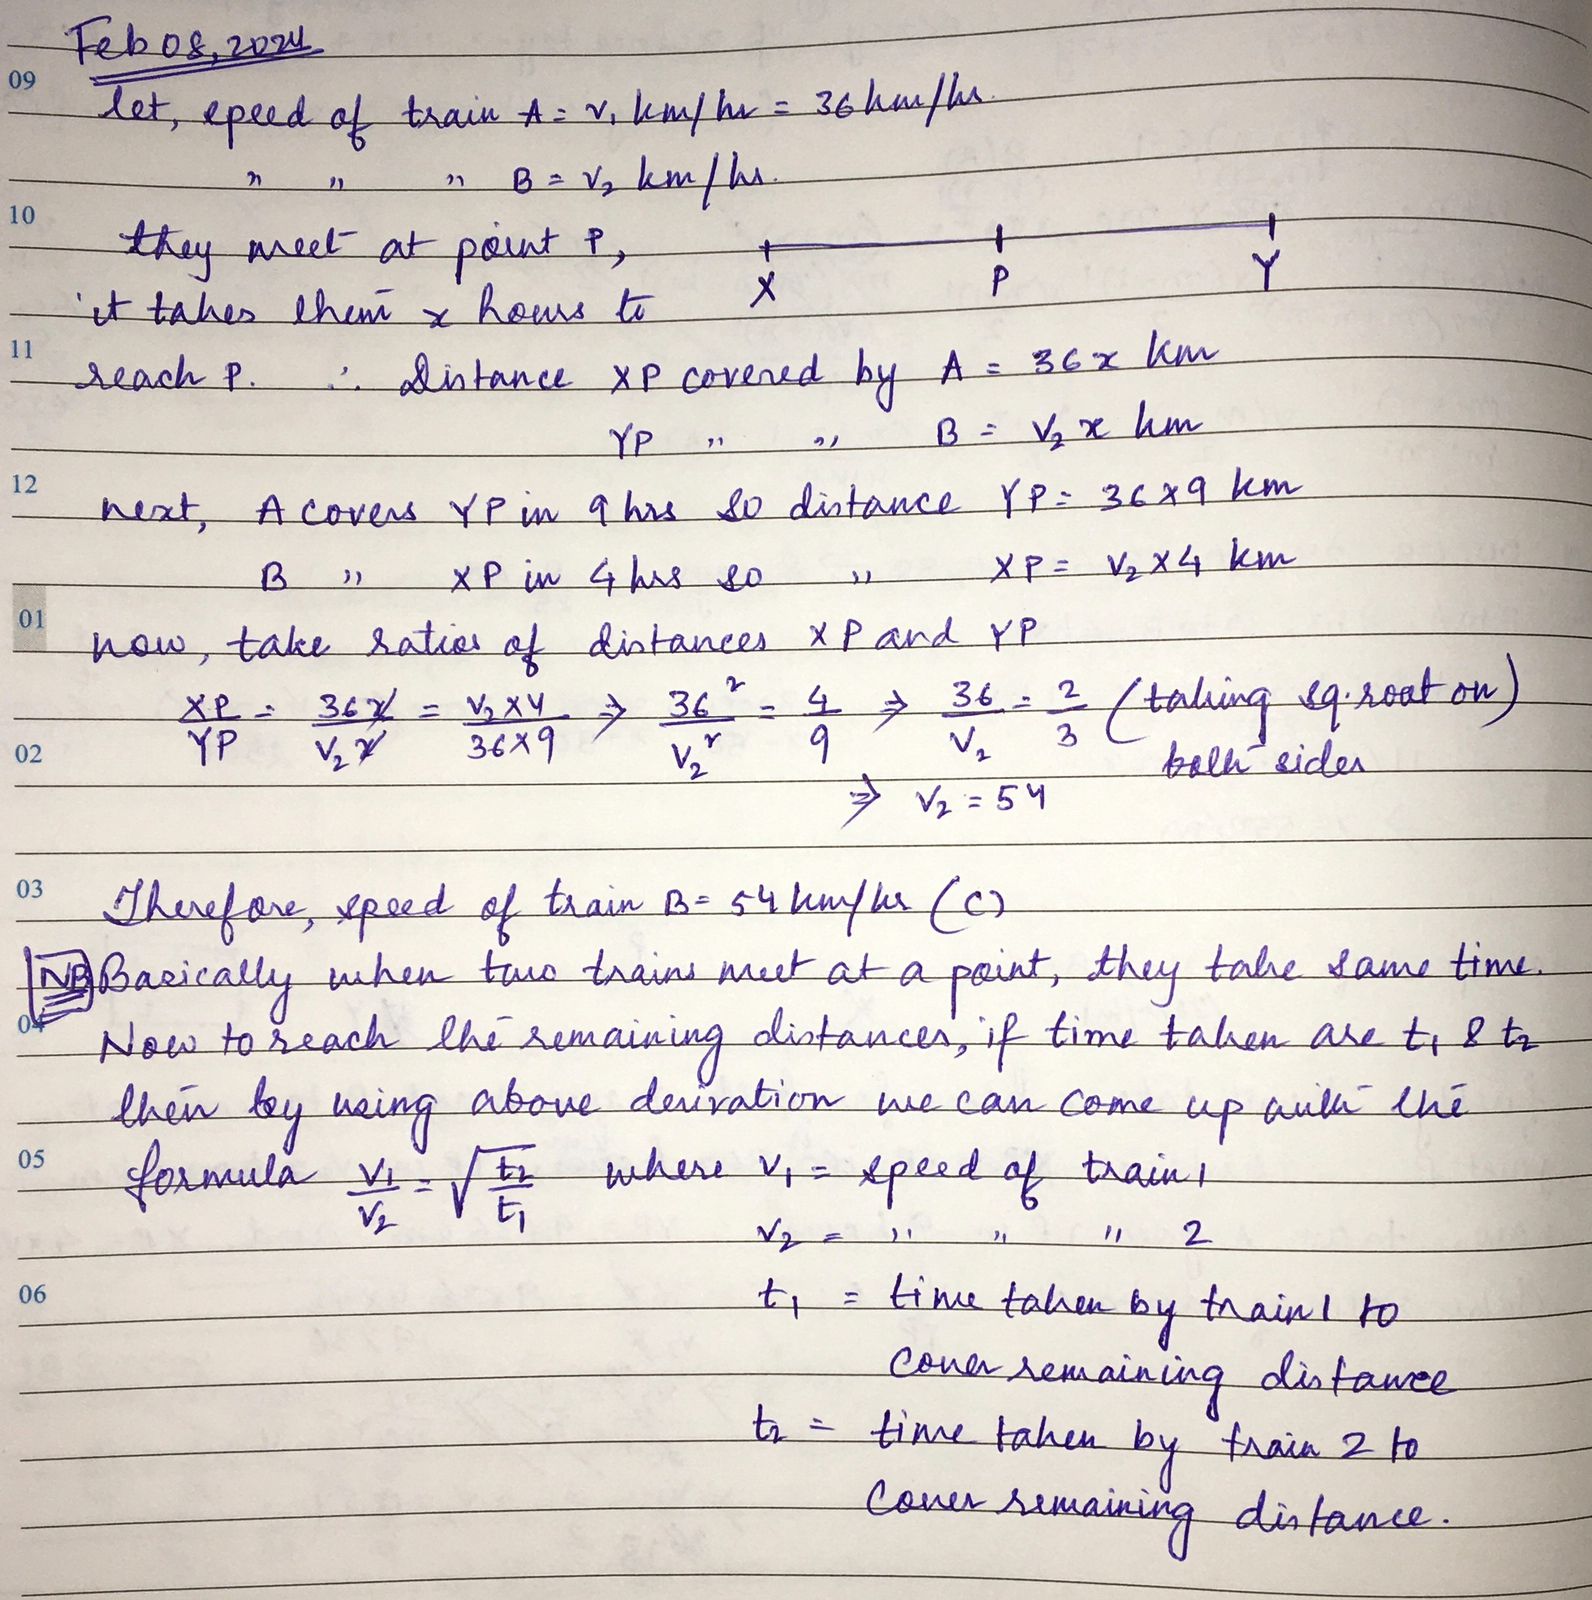 Feb 08, 2024
09
let, speed of train A = v₁ km/hr = 36 km/hr.
" " " B = v₂ km/hr.
10
they meet at point P,
X P Y
it takes them x hours to
11
reach P. ∴ Distance XP covered by A = 36x km
YP " " B = v₂x km
12
next, A covers YP in 9 hrs so distance YP = 36×9 km
B " XP in 4 hrs so " XP = v₂×4 km
01
now, take ratios of distances XP and YP
XP/YP = 36x/v₂x = v₂×4/36×9 ⇒ 36²/v₂² = 4/9 ⇒ 36/v₂ = 2/3 (taking sq. root on)
02
both sides
⇒ v₂ = 54
03
Therefore, speed of train B = 54 km/hr (C)
NB Basically when two trains meet at a point, they take same time.
04
Now to reach the remaining distances, if time taken are t₁ & t₂
then by using above derivation we can come up with the
05
formula v₁/v₂ = √(t₂/t₁) where v₁ = speed of train 1
v₂ = " " " 2
06
t₁ = time taken by train 1 to
cover remaining distance
t₂ = time taken by train 2 to
cover remaining distance.